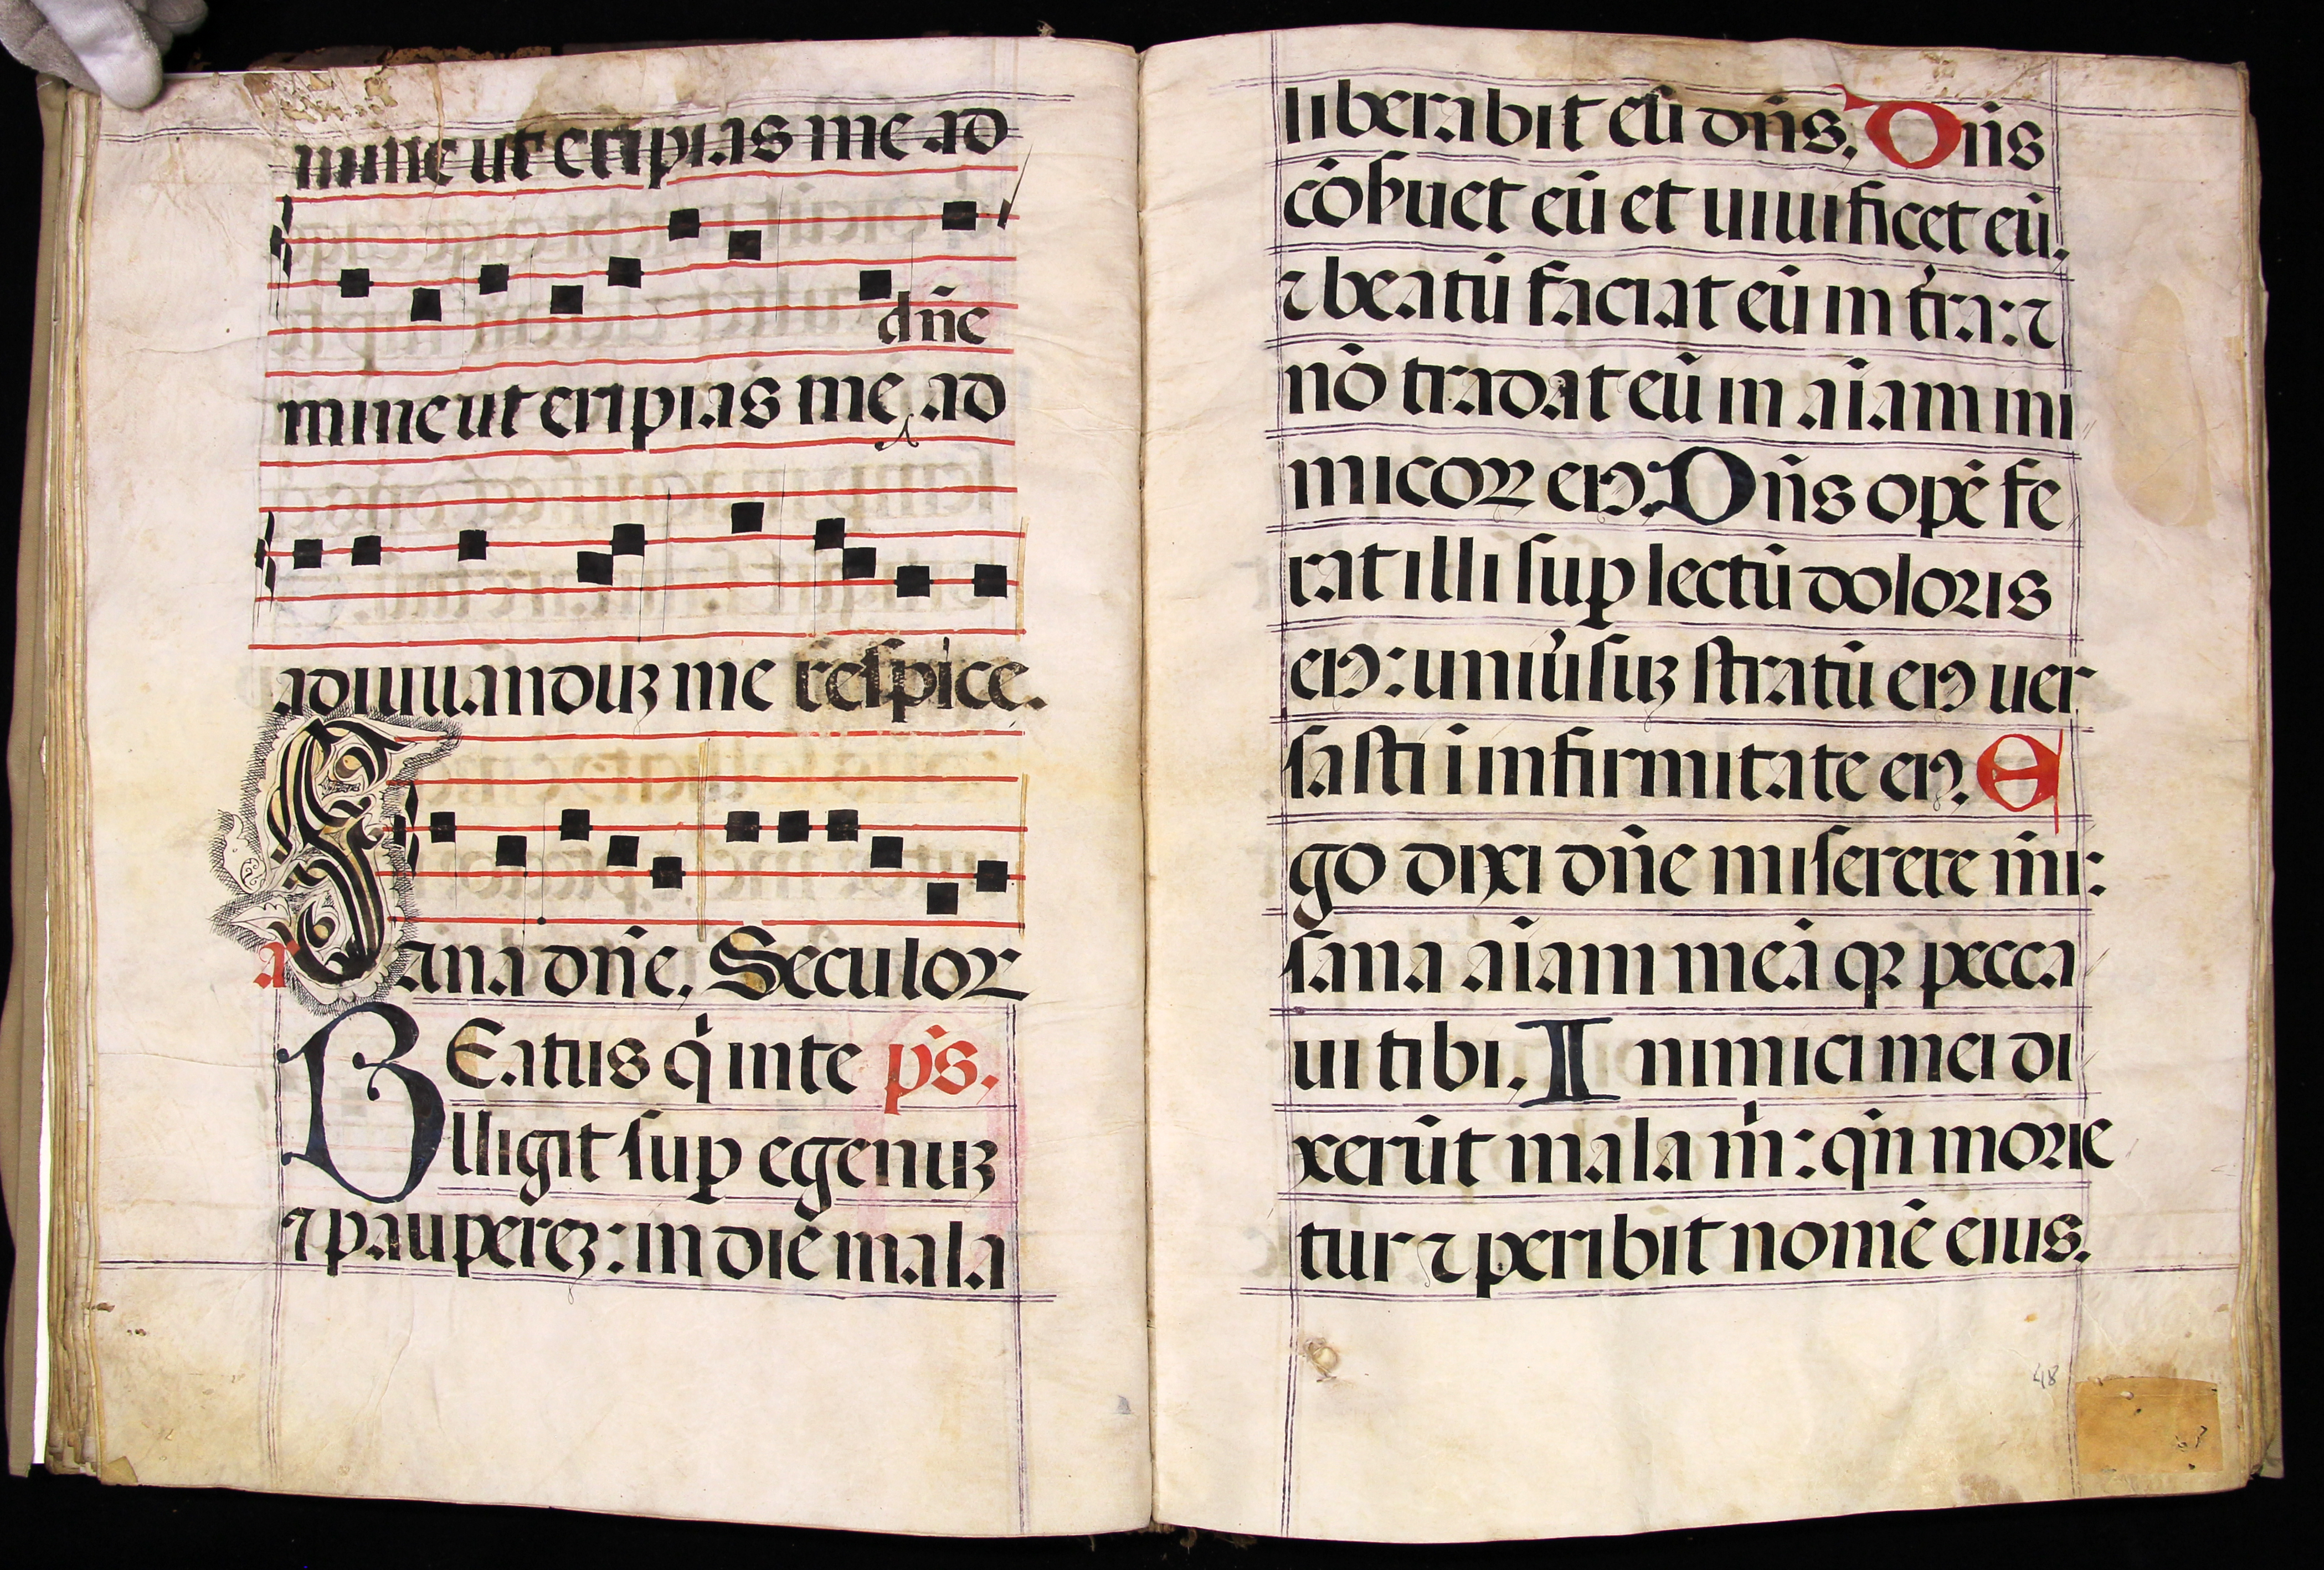 mine ut eripias me ad
dñe
mine ut eripias me ad
adiuuanduꝫ me respice.
a Sana dñe. Seculoꝝ
BEatus q̇ inte p̄s.
lligit sup egenuꝫ
⁊ paupereꝫ: in die mala
liberabit eū dñs. Dñs
cōẜuet eū et uiuificet eū.
⁊ beatū faciat eū in t̄ra: ⁊
nō tradat eū in aīam ini
micoꝝ eiꝰ. Dñs opē fe
rat illi sup lectū doloris
eiꝰ: uniūsuꝫ stratū eiꝰ uer
sasti ī infirmitate eiꝰ. E
go dixi dñe miserere m̄i:
sana aīam meā qꝛ pecca
ui tibi. Inimici mei di
xerūt mala m̄: qñ morie
tur ⁊ peribit nomē eius.
48